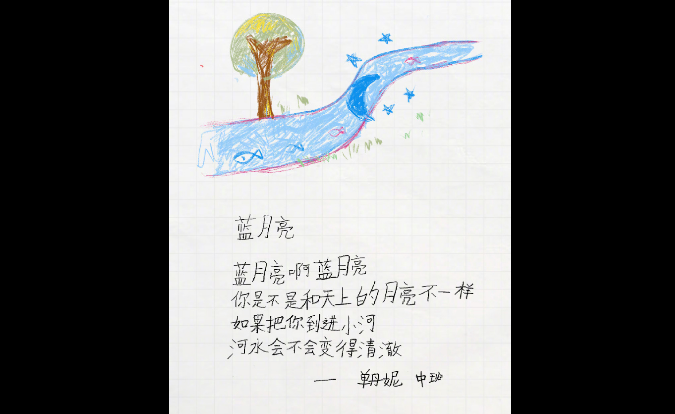 蓝月亮
蓝月亮啊蓝月亮
你是不是和天上的月亮不一样
如果把你到进小河
河水会不会变得清澈
—— 单丹妮 中班